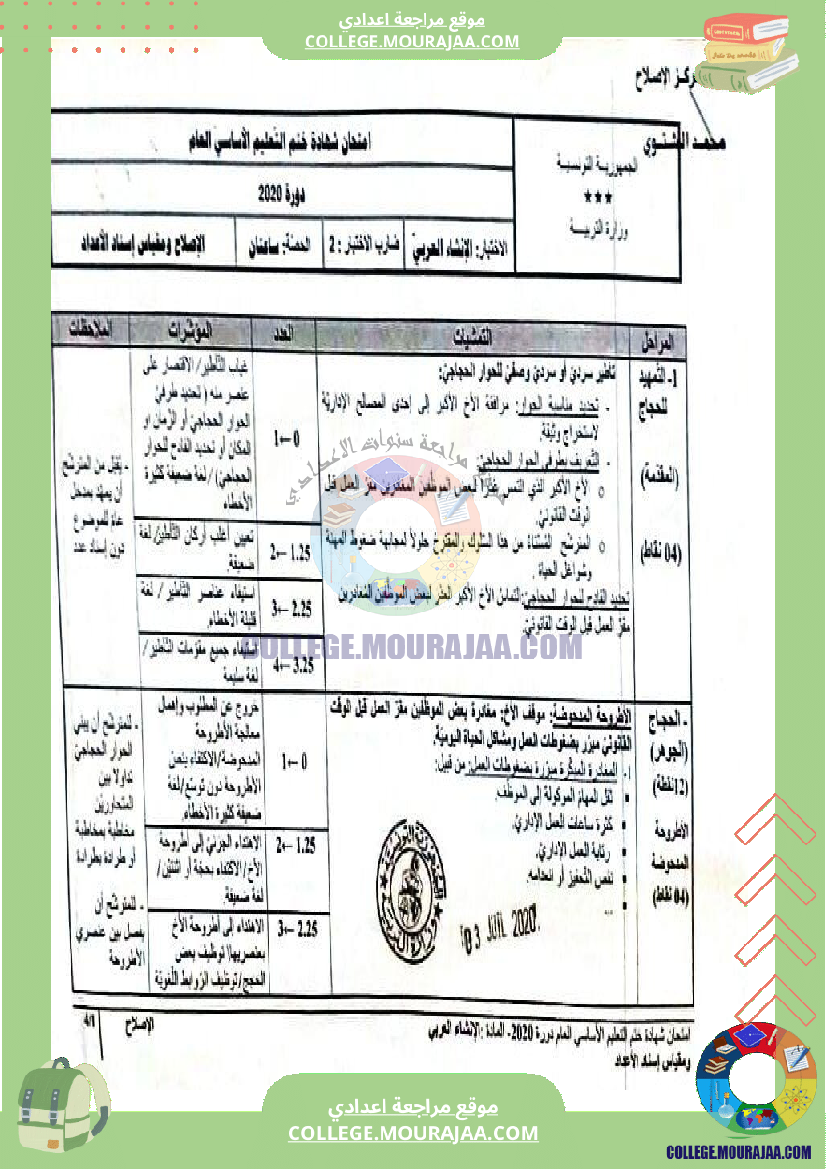 موقع مراجعة اعدادي
COLLEGE.MOURAJAA.COM
مركز الإصلاح
الجمهورية التونسية
***
وزارة التربية
امتحان شهادة ختم التعليم الأساسي العام
دورة 2020
الاختبار: الإنشاء العربي
ضارب الاختبار: 2
الحصة: ساعتان
الإصلاح ومقياس إسناد الأعداد
المراحل
التمشيات
العدد
المؤشرات
الملاحظات
1- التمهيد
للحجاج
(المقدمة)
(04 نقاط)
تأطير سردي أو سردي وصفي للحوار الحجاجي:
- تحديد مناسبة الحوار: مرافقة الأخ الأكبر إلى إحدى المصالح الإدارية
لاستخراج وثيقة.
- التعريف بطرفي الحوار الحجاجي:
o الأخ الأكبر الذي التمس عذرا لبعض الموظفين المغادرين مقر العمل قبل
الوقت القانوني.
o المترشح المستاء من هذا السلوك، المقترح حلولا لمجابهة ضغوط المهنة
وشواغل الحياة.
تحديد القادح للحوار الحجاجي: التماس الأخ الأكبر العذر لبعض الموظفين المغادرين
مقر العمل قبل الوقت القانوني.
0←1
غياب التأطير/ الاقتصار على
عنصر منه (تحديد طرفي
الحوار الحجاجي أو الزمان او
المكان أو تحديد القادح للحوار
الحجاجي)/ لغة ضعيفة كثيرة
الأخطاء
1.25←2
تعيين أغلب أركان التأطير/ لغة
ضعيفة.
2.25←3
استيفاء عناصر التأطير/ لغة
قليلة الأخطاء.
3.25←4
استيفاء جميع مقومات التأطير/
لغة سليمة
- يقبل من المترشح
أن يمهد بمدخل
عام للموضوع
دون إسناد عدد
موقع مراجعة سنوات الاعدادي
COLLEGE.MOURAJAA.COM
- الحجاج
(الجوهر)
(12نقطة)
الأطروحة
المدحوضة
(04 نقاط)
الأطروحة المدحوضة: موقف الأخ: مغادرة بعض الموظفين مقر العمل قبل الوقت
القانوني مبرر بضغوطات العمل ومشاكل الحياة اليومية.
1- المغادرة المبكرة مبررة بضغوطات العمل: من قبيل:
▪ ثقل المهام الموكولة إلى الموظف.
▪ كثرة ساعات العمل الإداري.
▪ رتابة العمل الإداري.
▪ نقص التحفيز أو انعدامه.
▪ ...
03 JUIL 2020
0←1
خروج عن المطلوب وإهمال
معالجة الأطروحة
المدحوضة/الاكتفاء بنص
الأطروحة دون توسع/لغة
ضعيفة كثيرة الأخطاء.
1.25←2
الاهتداء الجزئي إلى أطروحة
الأخ/الاكتفاء بحجة أو اثنتين/
لغة ضعيفة.
2.25←3
الاهتداء إلى أطروحة الأخ
بعنصريها/ توظيف بعض
الحجج/توظيف الروابط اللغوية
- للمترشح أن يبني
الحوار الحجاجي
تداولا بين
المتحاورين
مخاطبة بمخاطبة
أو طرادة بطرادة
- للمترشح أن
يفصل بين عنصري
الأطروحة
امتحان شهادة ختم التعليم الأساسي العام دورة 2020- المادة :الإنشاء العربي
ومقياس إسناد الأعداد
الإصلاح
4/1
موقع مراجعة اعدادي
COLLEGE.MOURAJAA.COM
COLLEGE.MOURAJAA.COM